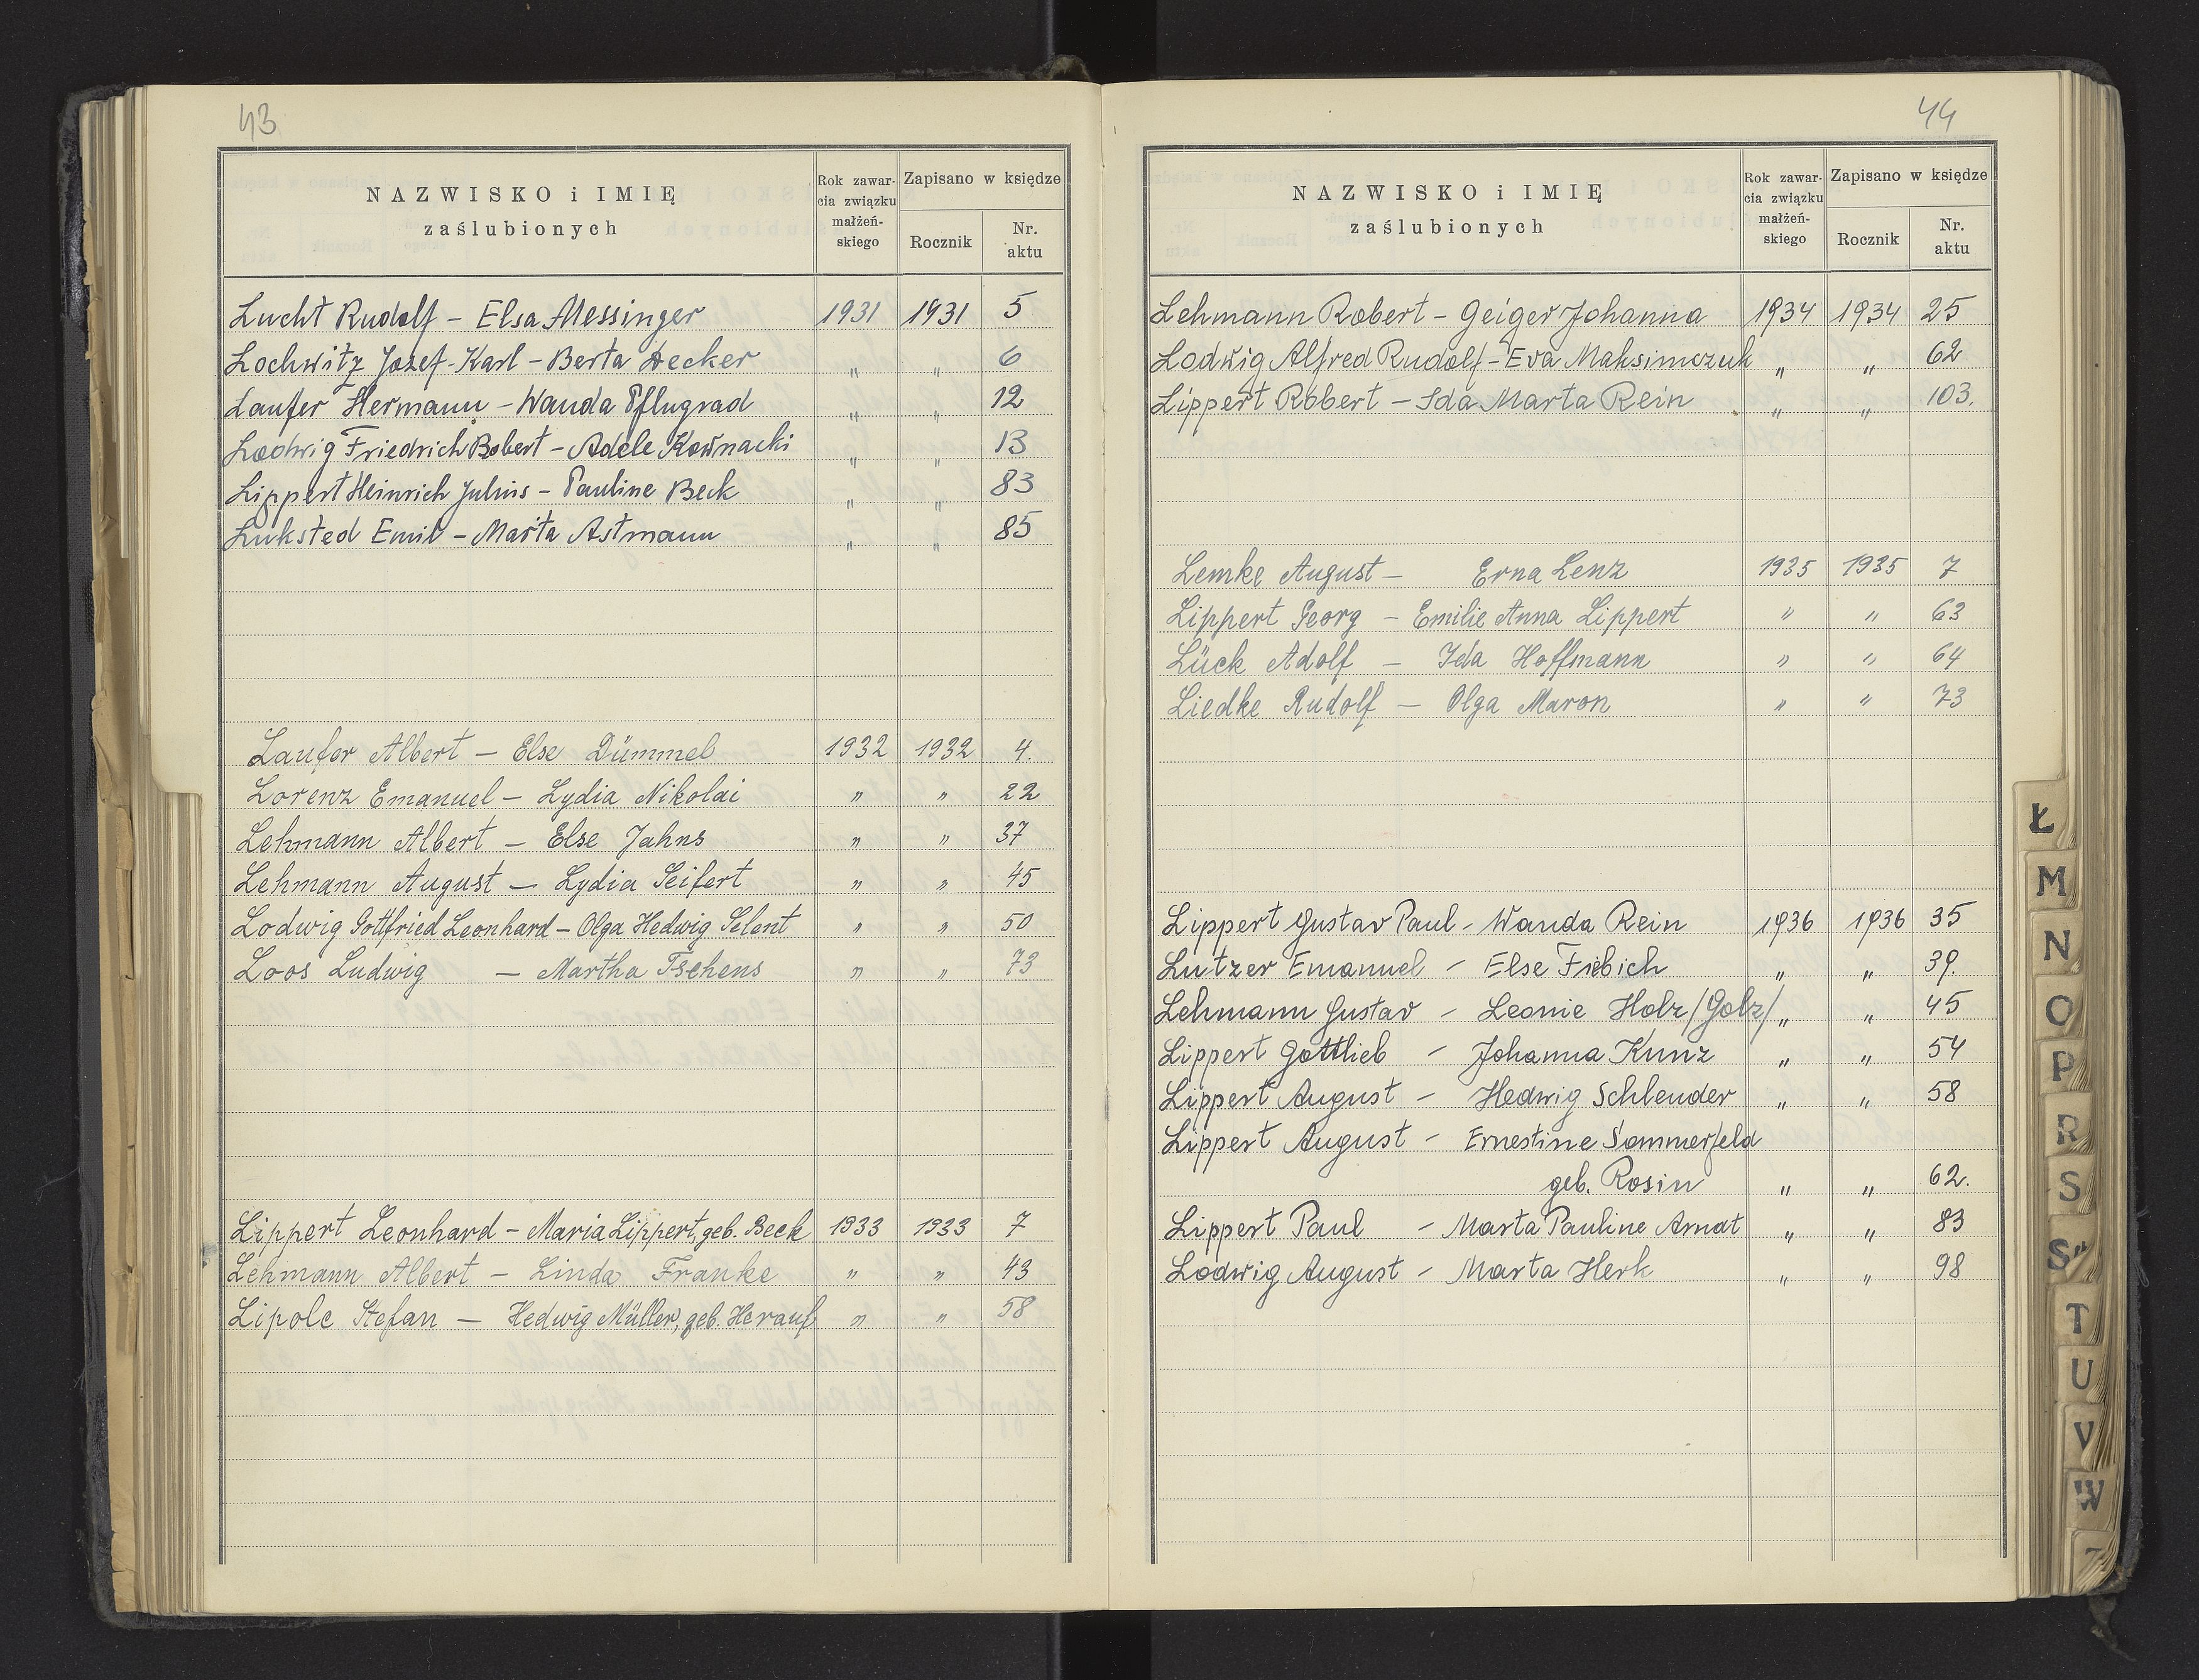 43
NAZWISKO i IMIĘ
zaślubionych
Rok zawar-
cia związku
małżeń-
skiego
Zapisano w księdze
Rocznik
Nr.
aktu
Lucht Rudolf – Elsa Messinger 1931 1931 5
Lochwitz Jozef-Karl – Berta Decker " " 6
Laufer Hermann – Wanda Pflugrad " " 12
Lodwig Friedrich Robert – Adele Kownacki " " 13
Lippert Heinrich Julius – Pauline Beck " " 83
Luksted Emil – Marta Astmann " " 85
Laufer Albert – Else Dümmel 1932 1932 4.
Lorenz Emanuel – Lydia Nikolai " " 22
Lehmann Albert – Else Jahns " " 37
Lehmann August – Lydia Seifert " " 45
Lodwig Gottfried Leonhard – Olga Hedwig Selent " " 50
Loos Ludwig – Martha Tschens " " 73
Lippert Leonhard – Maria Lippert, geb. Beck 1933 1933 7
Lehmann Albert – Linda Franke " " 43
Lipole Stefan – Hedwig Müller, geb. Herauf " " 58
44
NAZWISKO i IMIĘ
zaślubionych
Rok zawar-
cia związku
małżeń-
skiego
Zapisano w księdze
Rocznik
Nr.
aktu
Lehmann Robert – Geiger Johanna 1934 1934 25
Lodwig Alfred Rudolf – Eva Maksimczuk " " 62
Lippert Robert – Ida Marta Rein " " 103.
Lemke August – Erna Lenz 1935 1935 7
Lippert Georg – Emilie Anna Lippert " " 63
Lück Adolf – Ida Hoffmann " " 64
Liedke Rudolf – Olga Maron " " 73
Lippert Gustav Paul – Wanda Rein 1936 1936 35
Lutzer Emanuel – Else Fiebich " " 39.
Lehmann Gustav – Leonie Holz /Golz/ " " 45
Lippert Gottlieb – Johanna Kunz " " 54
Lippert August – Hedwig Schlender " " 58
Lippert August – Ernestine Sommerfeld
geb. Rosin " " 62.
Lippert Paul – Marta Pauline Arndt " " 83
Lodwig August – Marta Herk " " 98
Ł
M
N
O
P
R
S
Ś
T
U
V
W
Z